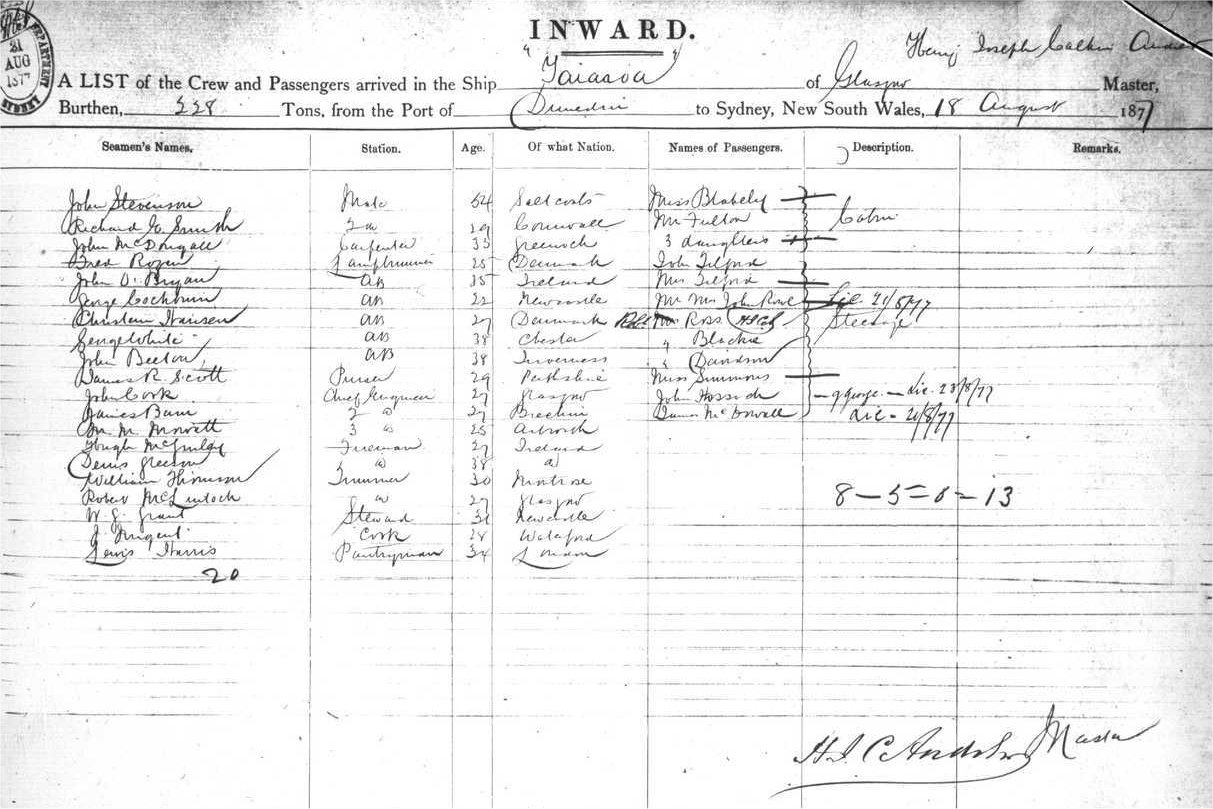 21
AUG
1877
DEPARTMENT
SYDNEY
INWARD.
Henry Joseph Calkin
A LIST of the Crew and Passengers arrived in the Ship "Taiaroa" of Glasgow Master,
Burthen, 228 Tons, from the Port of Dunedin to Sydney, New South Wales, 18 August 1877
Seamen's Names. Station. Age. Of what Nation. Names of Passengers. Description. Remarks.
John Stevenson Mate 54 Saltcoats Miss Blakely
Richard G. Smith 2nd 29 Cornwall Mr Fulton Cabin
John McDougall Carpenter 33 Greenock 3 daughters
Fred Lamptrimmer 25 Denmark John Tilford
John O'Bryan AB 35 Ireland Mrs Tilford
George Cockburn AB 22 Newcastle Mr Mrs John Rowe Lic. 21/8/77
Christian Hansen AB 27 Denmark Ross Steerage
George White AB 38 Chester " Blackie
John Beeton AB 38 Inverness " Davidson
James R. Scott Purser 29 Perthshire Miss Simmons
John Cook Chief Engineer 27 Glasgow John Lic. 23/8/77
James Bain 2 do 27 Brechin James McDowall Lic - 21/8/77
M. Mowatt 3 do 25 Arbroath
Hugh McGinley Fireman 27 Ireland
Denis do 38 do
William Thomson Trimmer 30 Montrose
Robert McLintock do 27 Glasgow
W. G. Grant Steward 31 Newcastle
J Nugent Cook 28 Waterford
Lewis Harris Pantryman 34 London
8 - 5 = 0 = 13
20
H. J. C. Andrew Master